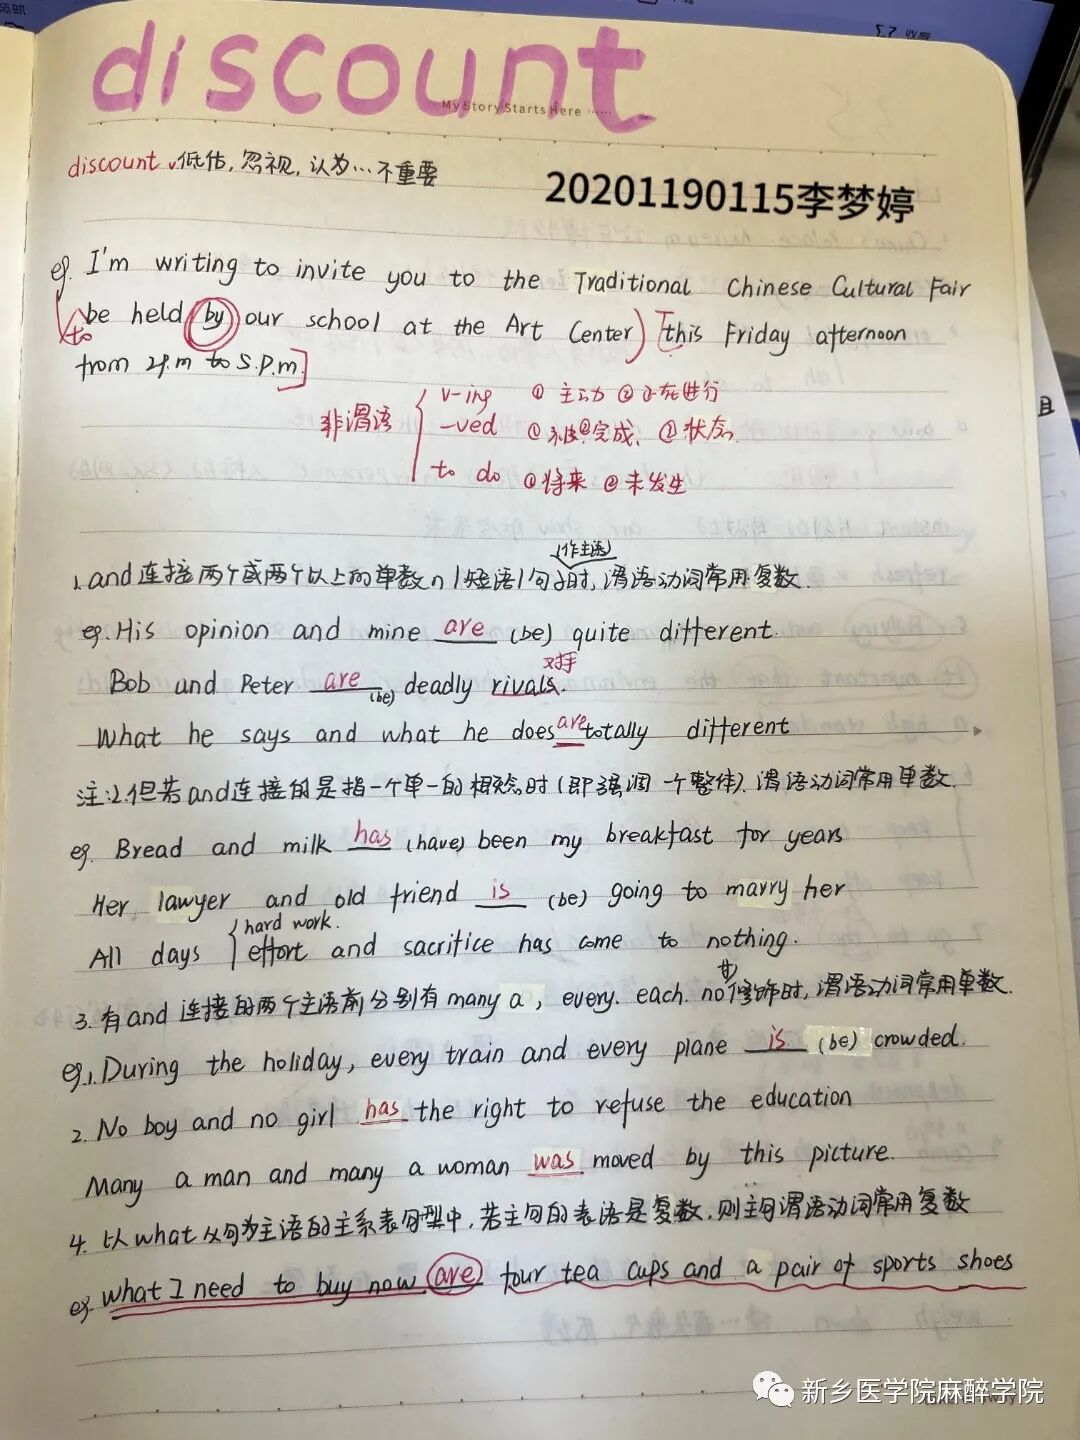 discount
My Story Starts Here ······
discount v.低估,忽视,认为…不重要
20201190115李梦婷
eg. I'm writing to invite you to the Traditional Chinese Cultural Fair
to be held by our school at the Art Center) [this Friday afternoon
from 2p.m to 5.P.m]
非谓语
v-ing ①主动②正在进行
-ved ①被②完成、③状态
to do ①将来②未发生
(作主语)
1.and连接两个或两个以上的单数n/短语/句子时,谓语动词常用复数.
eg.His opinion and mine are (be) quite different.
对手
Bob and Peter are (be) deadly rivals.
What he says and what he does are totally different
注:2.但若and连接的是指一个单一的概念时(即强调一个整体).谓语动词常用单数.
eg. Bread and milk has (have) been my breakfast for years
Her lawyer and old friend is (be) going to marry her
hard work.
All days effort and sacrifice has come to nothing.
3.有and连接的两个主语前分别有many a, every. each. no修饰时,谓语动词常用单数.
eg.1.During the holiday, every train and every plane is (be) crowded.
2. No boy and no girl has the right to refuse the education
Many a man and many a woman was moved by this picture.
4. 以what从句为主语的主系表句型中,若主句的表语是复数,则主句谓语动词常用复数
eg. what I need to buy now are four tea cups and a pair of sports shoes
新乡医学院麻醉学院